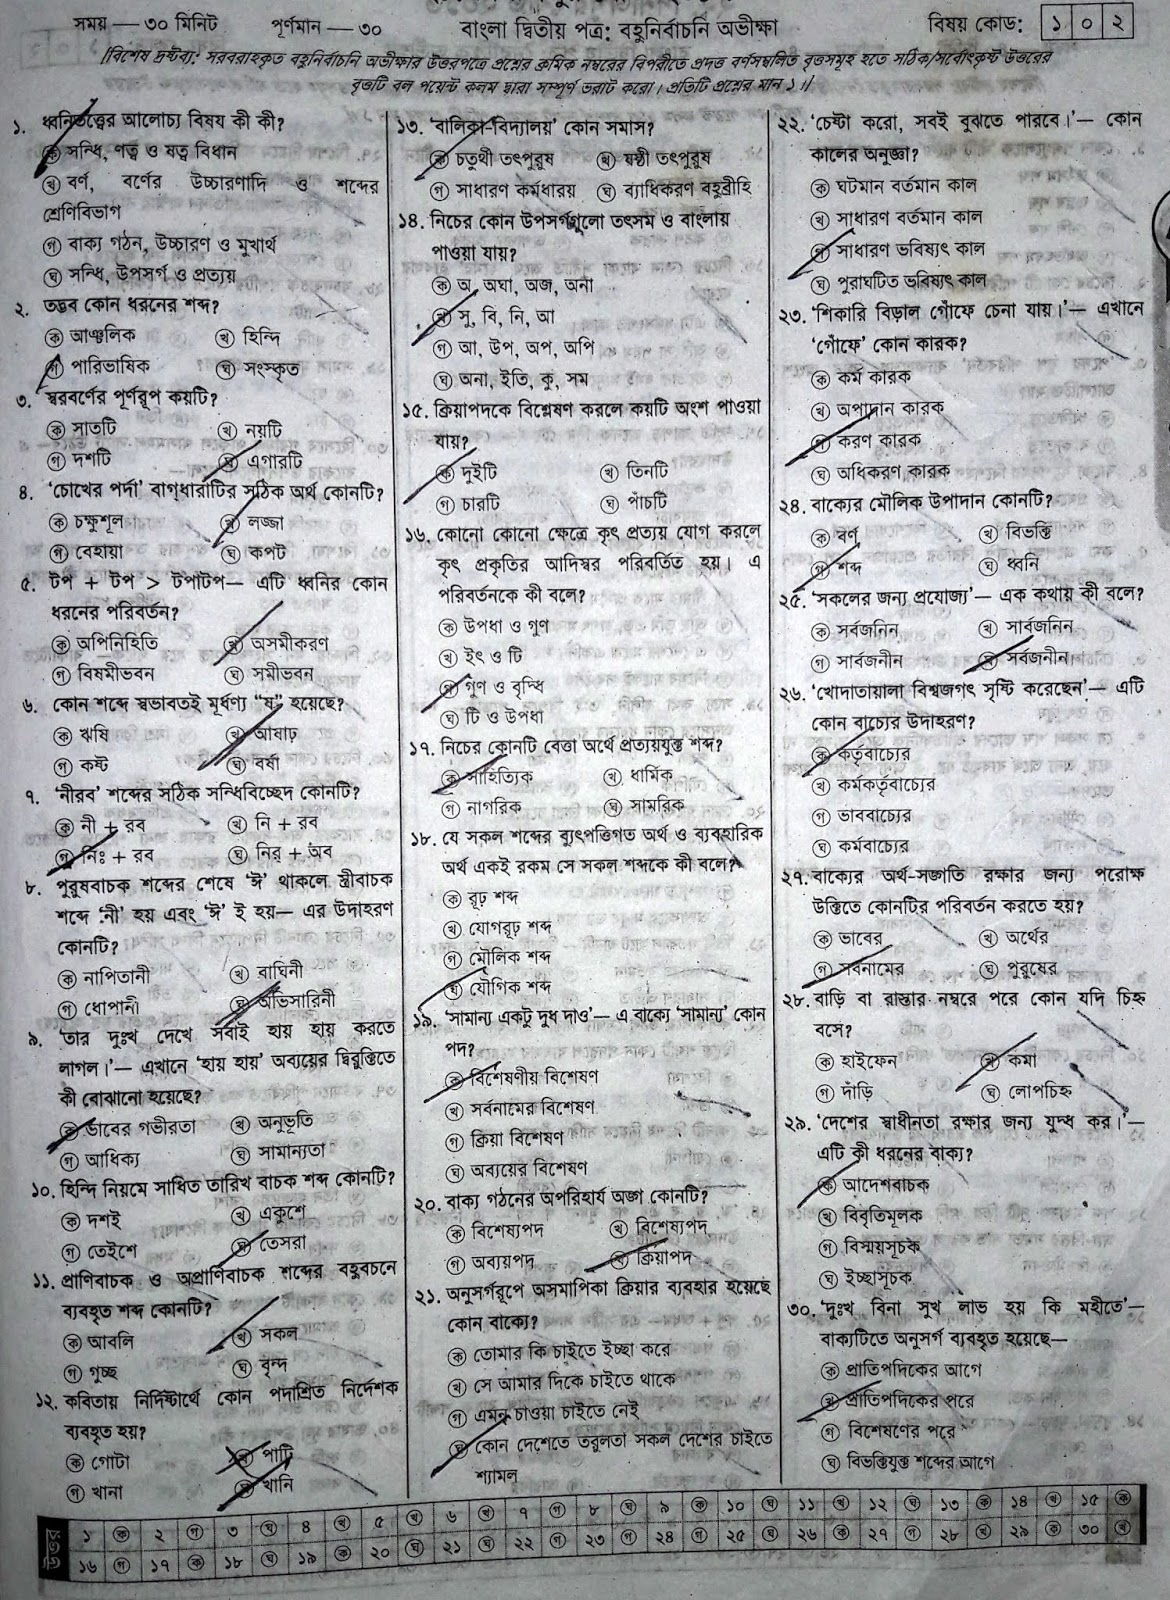 সময় — ৩০ মিনিট পূর্ণমান — ৩০ বাংলা দ্বিতীয় পত্র: বহুনির্বাচনি অভীক্ষা বিষয় কোড: ১ ০ ২
[বিশেষ দ্রষ্টব্য: সরবরাহকৃত বহুনির্বাচনি অভীক্ষার উত্তরপত্রে প্রশ্নের ক্রমিক নম্বরের বিপরীতে প্রদত্ত বর্ণসম্বলিত বৃত্তসমূহ হতে সঠিক/সর্বোৎকৃষ্ট উত্তরের
বৃত্তটি বল পয়েন্ট কলম দ্বারা সম্পূর্ণ ভরাট করো। প্রতিটি প্রশ্নের মান ১।]
১. ধ্বনিতত্ত্বের আলোচ্য বিষয় কী কী?
ক সন্ধি, ণত্ব ও ষত্ব বিধান
খ বর্ণ, বর্ণের উচ্চারণাদি ও শব্দের
শ্রেণিবিভাগ
গ বাক্য গঠন, উচ্চারণ ও মুখার্থ
ঘ সন্ধি, উপসর্গ ও প্রত্যয়
২. তদ্ভব কোন ধরনের শব্দ?
ক আঞ্চলিক খ হিন্দি
গ পারিভাষিক ঘ সংস্কৃত
৩. স্বরবর্ণের পূর্ণরূপ কয়টি?
ক সাতটি খ নয়টি
গ দশটি ঘ এগারটি
৪. ‘চোখের পর্দা’ বাগ্‌ধারাটির সঠিক অর্থ কোনটি?
ক চক্ষুশূল খ লজ্জা
গ বেহায়া ঘ কপট
৫. টপ + টপ > টপাটপ— এটি ধ্বনির কোন
ধরনের পরিবর্তন?
ক অপিনিহিতি খ অসমীকরণ
গ বিষমীভবন ঘ সমীভবন
৬. কোন শব্দে স্বভাবতই মূর্ধণ্য “ষ” হয়েছে?
ক ঋষি খ আষাঢ়
গ কষ্ট ঘ বর্ষা
৭. ‘নীরব’ শব্দের সঠিক সন্ধিবিচ্ছেদ কোনটি?
ক নী + রব খ নি + রব
গ নিঃ + রব ঘ নির্ + অব
৮. পুরুষবাচক শব্দের শেষে ‘ঈ’ থাকলে স্ত্রীবাচক
শব্দে ‘নী’ হয় এবং ‘ঈ’ ই হয়— এর উদাহরণ
কোনটি?
ক নাপিতানী খ বাঘিনী
গ ধোপানী ঘ অভিসারিনী
৯. ‘তার দুঃখ দেখে সবাই হায় হায় করতে
লাগল।’— এখানে ‘হায় হায়’ অব্যয়ের দ্বিরুক্তিতে
কী বোঝানো হয়েছে?
ক ভাবের গভীরতা খ অনুভূতি
গ আধিক্য ঘ সামান্যতা
১০. হিন্দি নিয়মে সাধিত তারিখ বাচক শব্দ কোনটি?
ক দশই খ একুশে
গ তেইশে ঘ তেসরা
১১. প্রাণিবাচক ও অপ্রাণিবাচক শব্দের বহুবচনে
ব্যবহৃত শব্দ কোনটি?
ক আবলি খ সকল
গ গুচ্ছ ঘ বৃন্দ
১২. কবিতায় নির্দিষ্টার্থে কোন পদাশ্রিত নির্দেশক
ব্যবহৃত হয়?
ক গোটা খ পাটি
গ খানা ঘ খানি
১৩. ‘বালিকা-বিদ্যালয়’ কোন সমাস?
ক চতুর্থী তৎপুরুষ খ ষষ্ঠী তৎপুরুষ
গ সাধারণ কর্মধারয় ঘ ব্যাধিকরণ বহুব্রীহি
১৪. নিচের কোন উপসর্গগুলো তৎসম ও বাংলায়
পাওয়া যায়?
ক অ, অঘা, অজ, অনা
খ সু, বি, নি, আ
গ আ, উপ, অপ, অপি
ঘ অনা, ইতি, কু, সম
১৫. ক্রিয়াপদকে বিশ্লেষণ করলে কয়টি অংশ পাওয়া
যায়?
ক দুইটি খ তিনটি
গ চারটি ঘ পাঁচটি
১৬. কোনো কোনো ক্ষেত্রে কৃৎ প্রত্যয় যোগ করলে
কৃৎ প্রকৃতির আদিস্বর পরিবর্তিত হয়। এ
পরিবর্তনকে কী বলে?
ক উপধা ও গুণ
খ ইৎ ও টি
গ গুণ ও বৃদ্ধি
ঘ টি ও উপধা
১৭. নিচের কোনটি বেত্তা অর্থে প্রত্যয়যুক্ত শব্দ?
ক সাহিত্যিক খ ধার্মিক
গ নাগরিক ঘ সামরিক
১৮. যে সকল শব্দের ব্যুৎপত্তিগত অর্থ ও ব্যবহারিক
অর্থ একই রকম সে সকল শব্দকে কী বলে?
ক রূঢ় শব্দ
খ যোগরূঢ় শব্দ
গ মৌলিক শব্দ
ঘ যৌগিক শব্দ
১৯. ‘সামান্য একটু দুধ দাও’— এ বাক্যে ‘সামান্য’ কোন
পদ?
ক বিশেষণীয় বিশেষণ
খ সর্বনামের বিশেষণ
গ ক্রিয়া বিশেষণ
ঘ অব্যয়ের বিশেষণ
২০. বাক্য গঠনের অপরিহার্য অঙ্গ কোনটি?
ক বিশেষ্যপদ খ বিশেষ্যপদ
গ অব্যয়পদ ঘ ক্রিয়াপদ
২১. অনুসর্গরূপে অসমাপিকা ক্রিয়ার ব্যবহার হয়েছে
কোন বাক্যে?
ক তোমার কি চাইতে ইচ্ছা করে
খ সে আমার দিকে চাইতে থাকে
গ এমন চাওয়া চাইতে নেই
ঘ কোন দেশেতে তরুলতা সকল দেশের চাইতে
শ্যামল
২২. ‘চেষ্টা করো, সবই বুঝতে পারবে।’— কোন
কালের অনুজ্ঞা?
ক ঘটমান বর্তমান কাল
খ সাধারণ বর্তমান কাল
গ সাধারণ ভবিষ্যৎ কাল
ঘ পুরাঘটিত ভবিষ্যৎ কাল
২৩. ‘শিকারি বিড়াল গোঁফে চেনা যায়।’— এখানে
‘গোঁফে’ কোন কারক?
ক কর্ম কারক
খ অপাদান কারক
গ করণ কারক
ঘ অধিকরণ কারক
২৪. বাক্যের মৌলিক উপাদান কোনটি?
ক বর্ণ খ বিভক্তি
গ শব্দ ঘ ধ্বনি
২৫. ‘সকলের জন্য প্রযোজ্য’— এক কথায় কী বলে?
ক সর্বজনিন খ সার্বজনিন
গ সার্বজনীন ঘ সর্বজনীন
২৬. ‘খোদাতায়ালা বিশ্বজগৎ সৃষ্টি করেছেন’— এটি
কোন বাচ্যের উদাহরণ?
ক কর্তৃবাচ্যের
খ কর্মকর্তৃবাচ্যের
গ ভাববাচ্যের
ঘ কর্মবাচ্যের
২৭. বাক্যের অর্থ-সঙ্গতি রক্ষার জন্য পরোক্ষ
উক্তিতে কোনটির পরিবর্তন করতে হয়?
ক ভাবের খ অর্থের
গ সর্বনামের ঘ পুরুষের
২৮. বাড়ি বা রাস্তার নম্বরে পরে কোন যদি চিহ্ন
বসে?
ক হাইফেন খ কমা
গ দাঁড়ি ঘ লোপচিহ্ন
২৯. ‘দেশের স্বাধীনতা রক্ষার জন্য যুদ্ধ কর।’—
এটি কী ধরনের বাক্য?
ক আদেশবাচক
খ বিবৃতিমূলক
গ বিস্ময়সূচক
ঘ ইচ্ছাসূচক
৩০. ‘দুঃখ বিনা সুখ লাভ হয় কি মহীতে’—
বাক্যটিতে অনুসর্গ ব্যবহৃত হয়েছে—
ক প্রাতিপদিকের আগে
খ প্রাতিপদিকের পরে
গ বিশেষণের পরে
ঘ বিভক্তিযুক্ত শব্দের আগে
উত্তর
১ ক ২ গ ৩ ঘ ৪ খ ৫ খ ৬ খ ৭ গ ৮ ঘ ৯ ক ১০ ঘ ১১ খ ১২ ঘ ১৩ ক ১৪ খ ১৫ ক
১৬ গ ১৭ ক ১৮ ঘ ১৯ ক ২০ ঘ ২১ ঘ ২২ গ ২৩ গ ২৪ গ ২৫ ঘ ২৬ ক ২৭ গ ২৮ খ ২৯ ক ৩০ খ